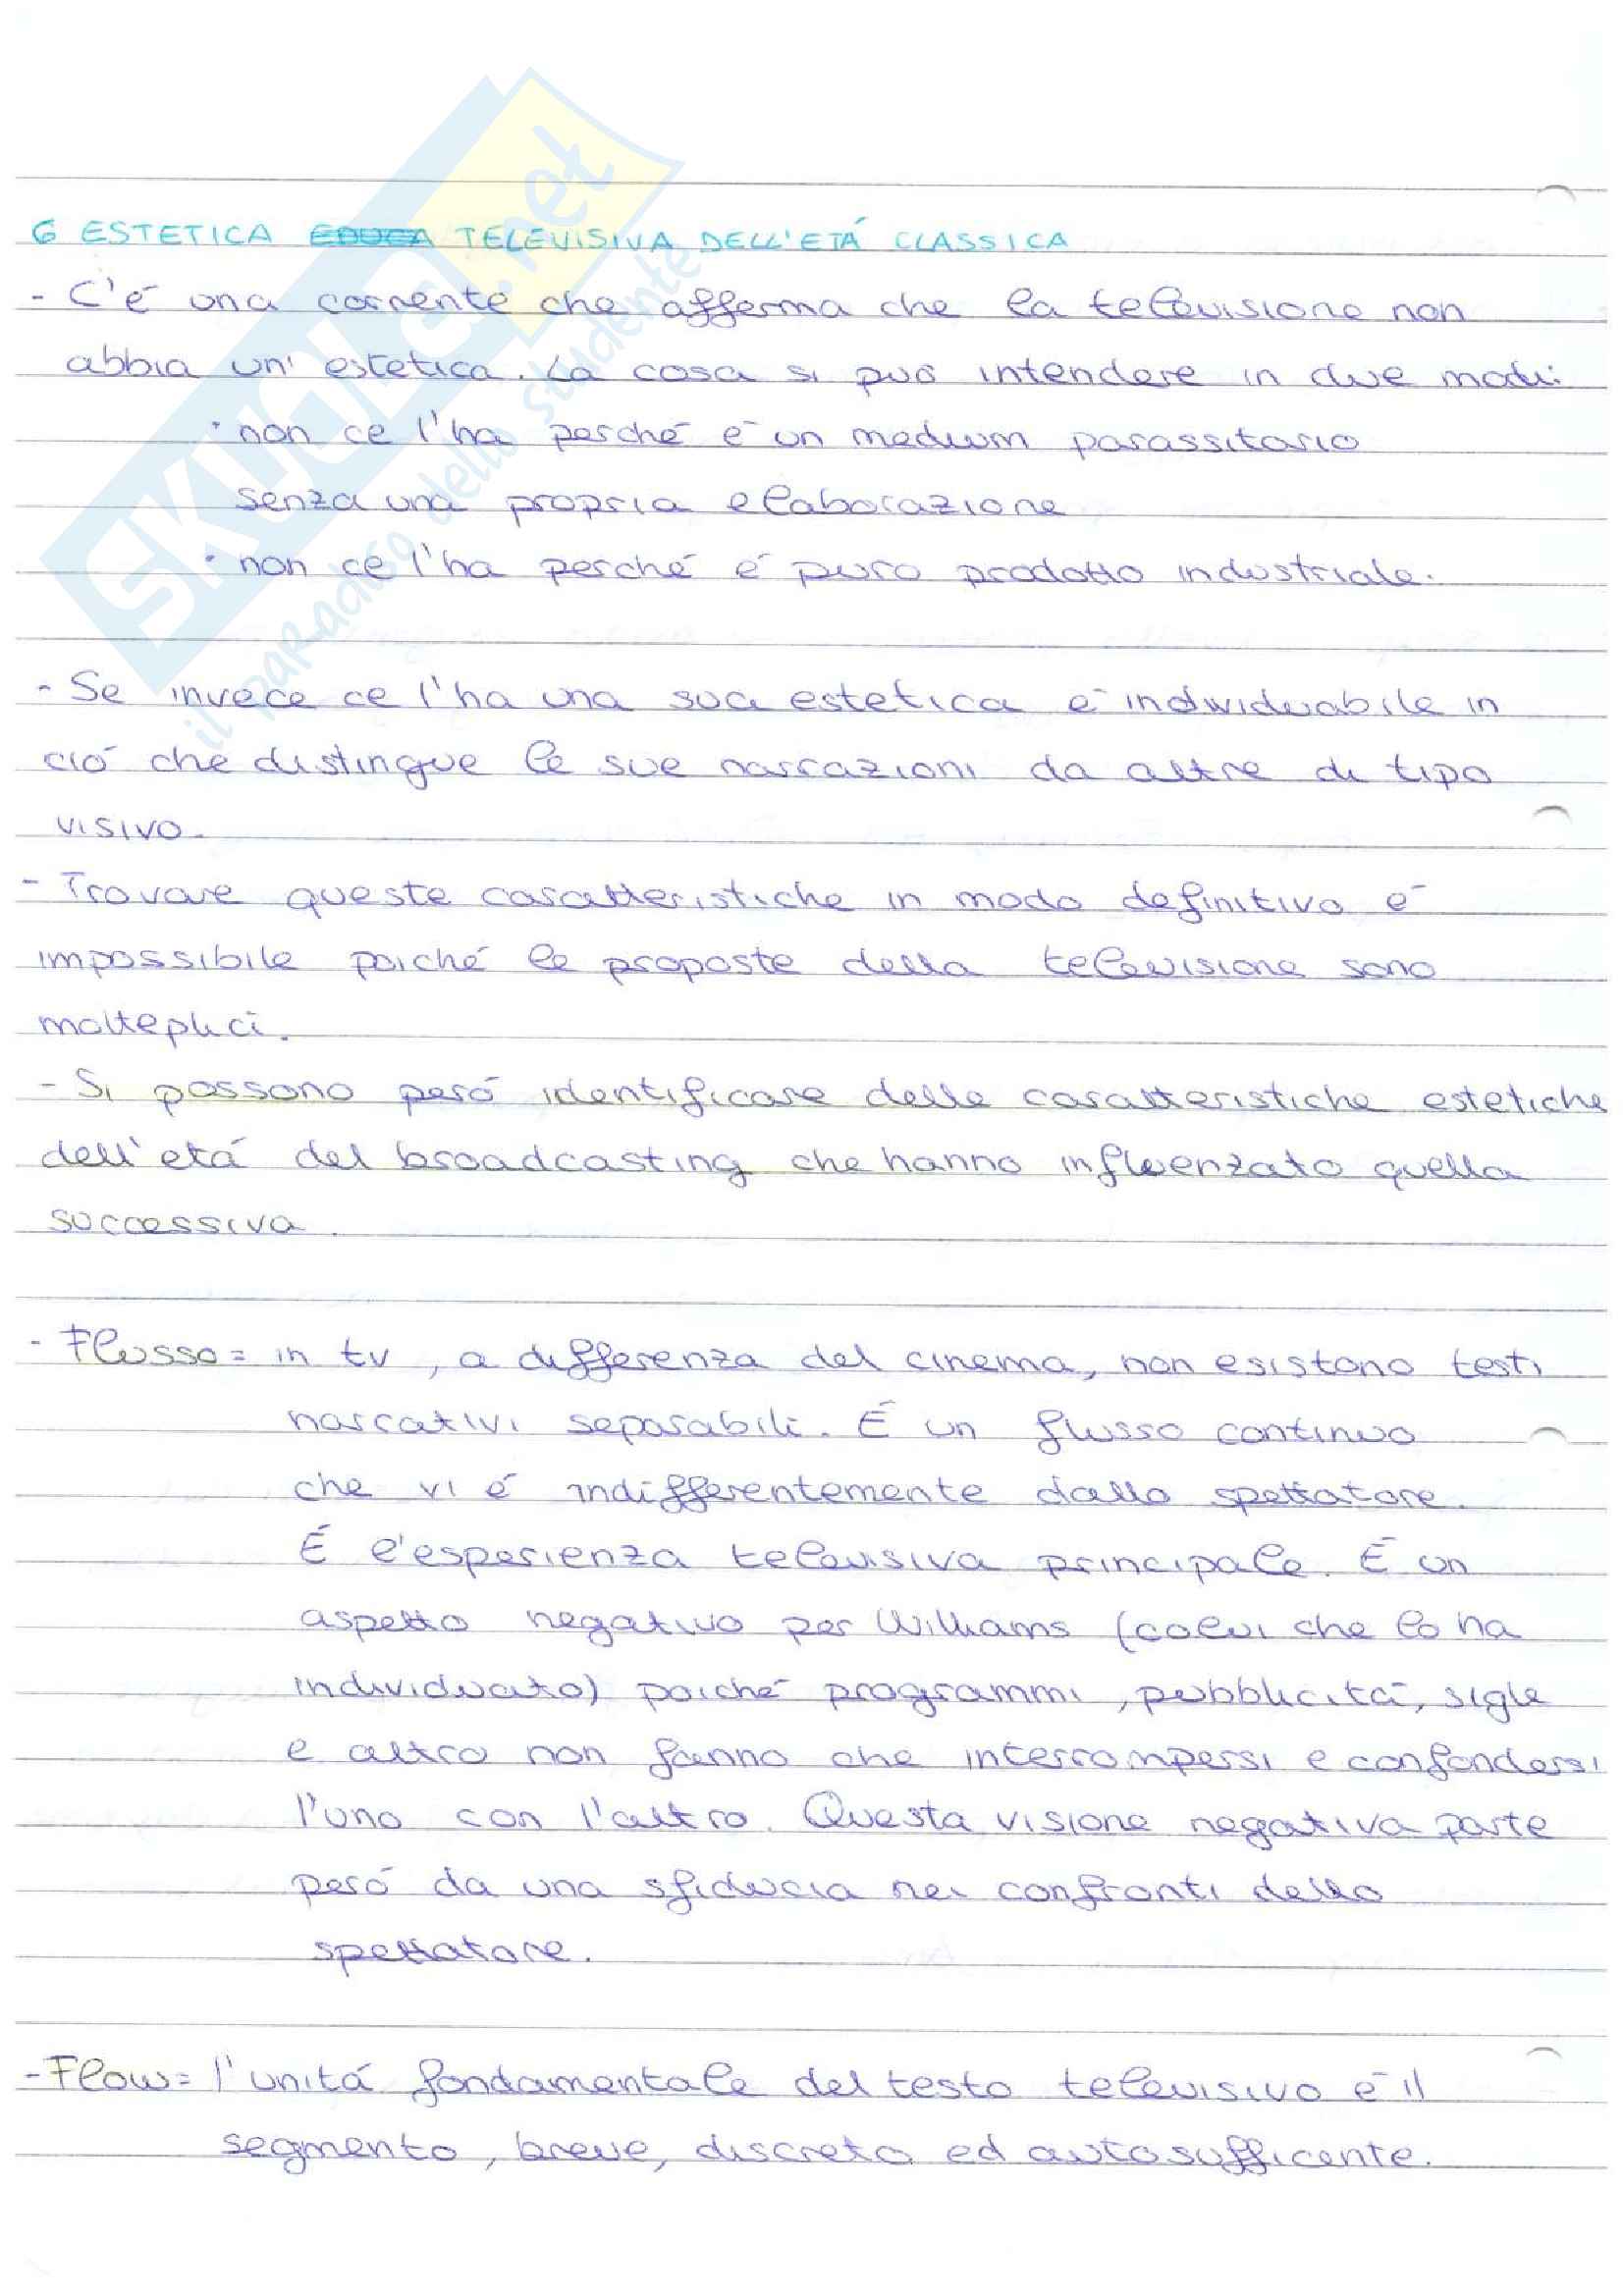 6 ESTETICA EDUCA TELEVISIVA DELL'ETÁ CLASSICA
- C'é una corrente che afferma che la televisione non
abbia un'estetica. La cosa si puó intendere in due modi:
· non ce l'ha perché é un medium parassitario
senza una propria elaborazione
· non ce l'ha perché é puro prodotto industriale.
- Se invece ce l'ha una sua estetica é individuabile in
ció che distingue le sue narrazioni da altre di tipo
visivo.
- Trovare queste caratteristiche in modo definitivo é
impossibile poiché le proposte della televisione sono
molteplici.
- Si possono peró identificare delle caratteristiche estetiche
dell'etá del broadcasting che hanno influenzato quella
successiva.
- Flusso = in tv, a differenza del cinema, non esistono testi
narrativi separabili. É un flusso continuo
che vi é indifferentemente dallo spettatore.
É l'esperienza televisiva principale. É un
aspetto negativo per Williams (colui che lo ha
individuato) poiché programmi, pubblicitá, sigle
e altro non fanno che interrompersi e confondersi
l'uno con l'altro. Questa visione negativa parte
peró da una sfiducia nei confronti dello
spettatore.
- Flow = l'unitá fondamentale del testo televisivo é il
segmento, breve, discreto ed autosufficente.
SKUOLA.net
il paradiso dello studente